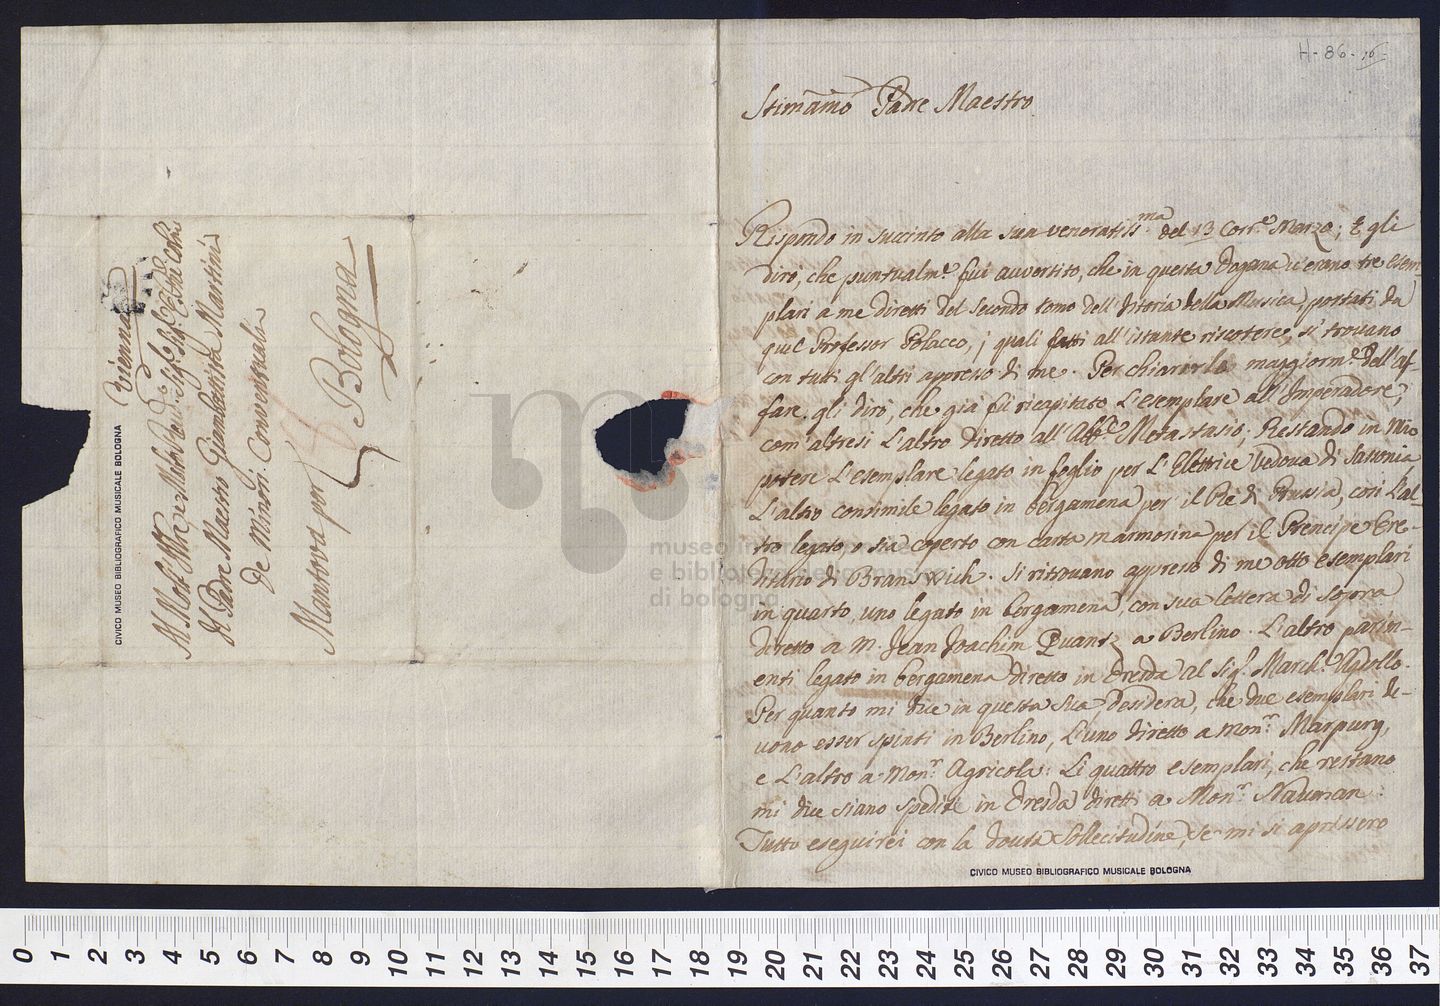 H-86-16
Stimamo Padre Maestro
Rispondo in succinto alla sua veneratiss.ma del 13 Corr.e Marzo; e gli
dirò, che puntualm.e fui avvertito, che in questa Dogana v'erano tre esem-
plari a me diretti del Secondo tomo dell'Istoria della Musica, portati da
quel Professor Polacco, i quali fatti all'istante riscotere, si trovano
con tutti gl'altri appresso di me. Per chiarirla maggiorm.e dell'af-
fare gli dirò, che già fù ricapitato L'esemplare all'Imperadore,
com'altresì L'altro diretto all'Abb.e Metastasio; Restando in mio
potere L'esemplare legato in foglio per L'Elettrice Vedova di Sassonia
L'altro consimile legato in bergamena per il Rè di Prussia, così L'al-
tro legato, o sia coperto con carta marmorina per il Prencipe Ere-
ditario di Branswich. Si ritrovano appresso di me otto esemplari
in quarto, uno legato in bergamena, con sua lettera di sopra
diretto a M. Jean Joachim Quantz a Berlino. L'altro parim-
enti legato in bergamena diretto in Dresda al Sig. March. Agdollo.
Per quanto mi dice in questa Sua, desidera, che due esemplari de-
vono esser spinti in Berlino, L'uno diretto a Mon.r Marpurg,
e L'altro a Mon.r Agricola: Li quattro esemplari, che restano
mi dice siano spediti in Dresda diretti a Mon.r Nauman.
Tutto eseguirei con la dovuta Sollecitudine, se mi si aprissero
CIVICO MUSEO BIBLIOGRAFICO MUSICALE BOLOGNA
Vienna
Al Molt
Il Padre Maestro Giambattista Martini
De Minori: Conventuali
Mantova per Bologna
CIVICO MUSEO BIBLIOGRAFICO MUSICALE BOLOGNA
museo internazionale
e biblioteca della musica
di bologna
0 1 2 3 4 5 6 7 8 9 10 11 12 13 14 15 16 17 18 19 20 21 22 23 24 25 26 27 28 29 30 31 32 33 34 35 36 37